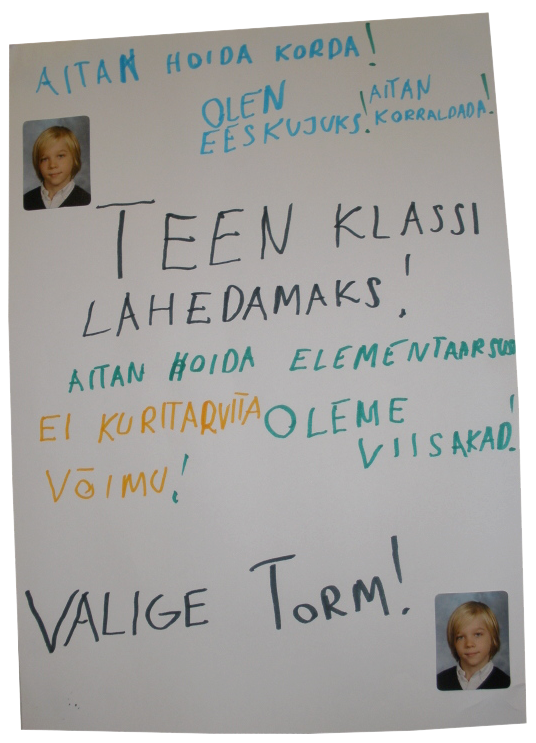 AITAN HOIDA KORDA!
OLEN
EESKUJUKS!
AITAN
KORRALDADA!
TEEN KLASSI
LAHEDAMAKS!
AITAN HOIDA ELEMENTAARSUSI
EI KURITARVITA
VÕIMU!
OLEME
VIISAKAD!
VALIGE TORM!